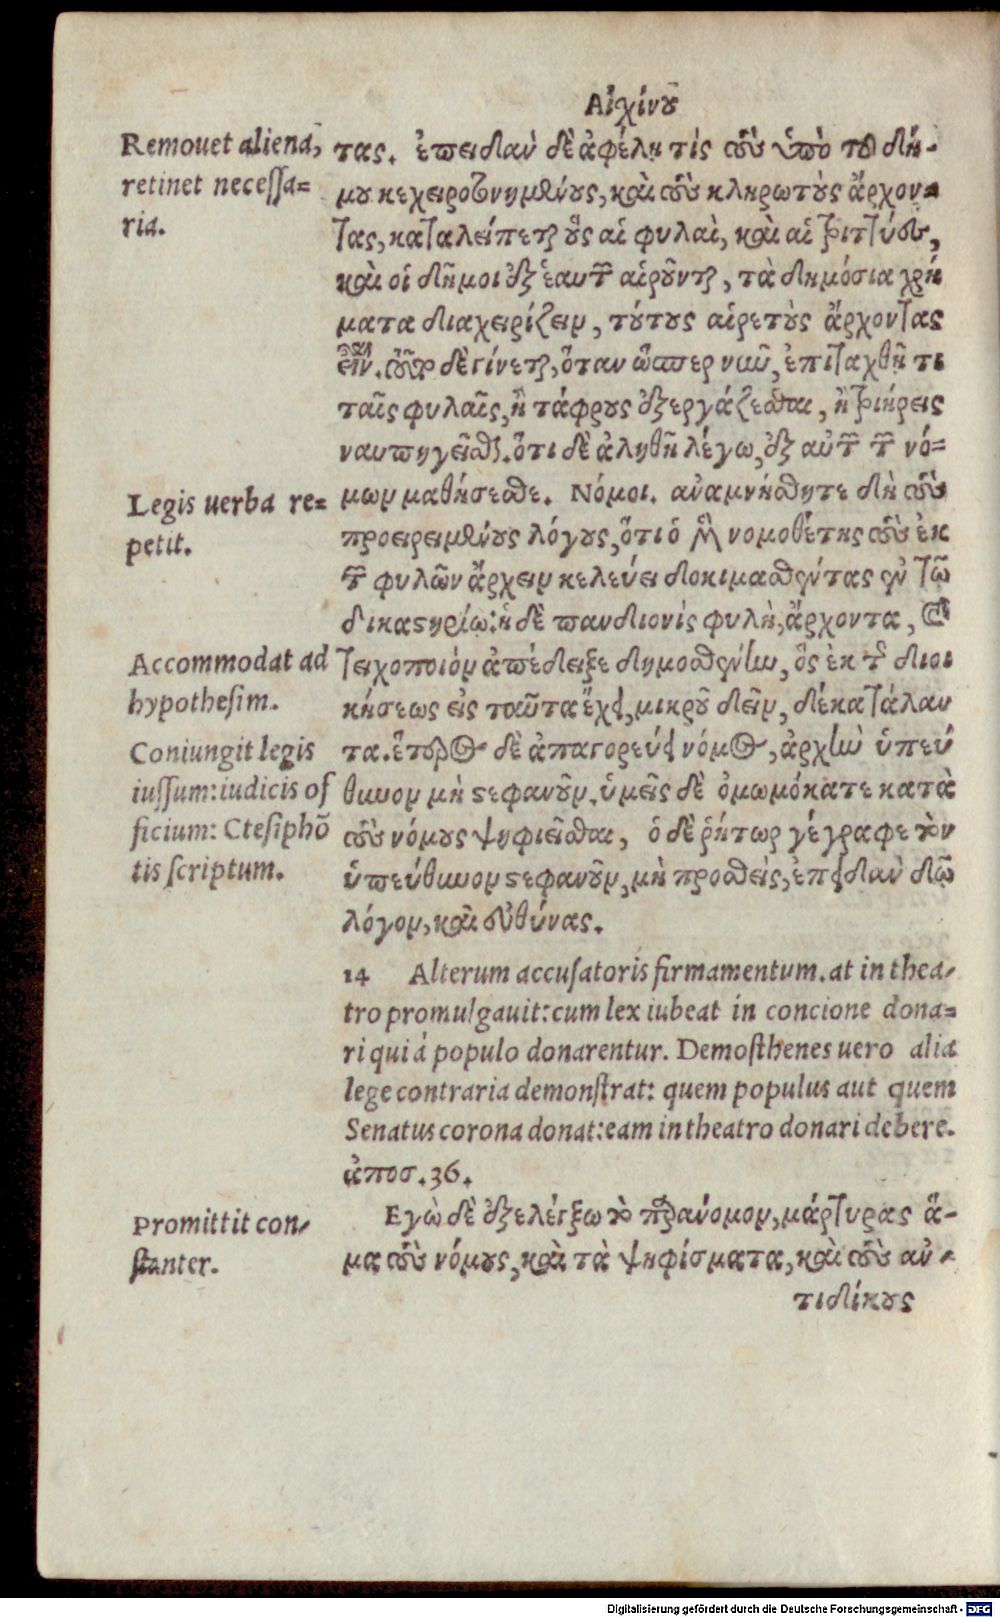 Αἰχίνου
Remouet aliena,
retinet necessa=
ria.
τας. ἐπειδὰν δὲ ἀφέλῃ τὶς τοὺς ὑπὸ τοῦ δή-
μου κεχειροτονημένους, καὶ τοὺς κληρωτοὺς ἄρχον=
τας, καταλείπεται οὓς αἱ φυλαὶ, καὶ αἱ τριττύες,
καὶ οἱ δῆμοι ἐξ ἑαυτῶν αἱροῦνται, τὰ δημόσια χρή
ματα διαχειρίζειν, τούτους αἱρετοὺς ἄρχοντας
εἶναι. τοῦτο δὲ γίνεται, ὅταν ὥσπερ νῦν, ἐπιταχθῇ τι
ταῖς φυλαῖς, ἢ τάφρους ἐξεργάζεσθαι, ἢ τριήρεις
ναυπηγεῖσθαι. ὅτι δὲ ἀληθῆ λέγω, ἐξ αὐτῶν τῶν νό-
Legis uerba re=
petit.
μων μαθήσεσθε. Νόμοι. ἀναμνήσθητε δὴ τοὺς
προειρειμένους λόγους, ὅτι ὁ μὲν νομοθέτης τοὺς ἐκ
τῶν φυλῶν ἄρχειν κελεύει δοκιμασθέντας ἐν τῶ
δικαστηρίω: ἡ δὲ πανδιονὶς φυλὴ, ἄρχοντα, καὶ
Accommodat ad
hypothesim.
τειχοποιὸν ἀπέδειξε δημοσθένην, ὃς ἐκ τῆς διοι
κήσεως εἰς ταῦτα ἔχει, μικροῦ δεῖν, δέκα τάλαν
Coniungit legis
iussum: iudicis of
ficium: Ctesiphõ
tis scriptum.
τα. ἕτερος δὲ ἀπαγορεύει νόμος, ἀρχὴν ὑπεύ
θυνον μὴ στεφανοῦν. ὑμεῖς δὲ ὀμωμόκατε κατὰ
τοὺς νόμους ψηφιεῖσθαι, ὁ δὲ ῥήτωρ γέγραφε τὸν
ὑπεύθυνον στεφανοῦν, μὴ προσθεὶς, ἐπειδὰν δῶ
λόγον, καὶ εὐθύνας.
14 Alterum accusatoris firmamentum. at in thea-
tro promulgauit: cum lex iubeat in concione dona=
ri qui à populo donarentur. Demosthenes uero alia
lege contraria demonstrat: quem populus aut quem
Senatus corona donat: eam in theatro donari debere.
ἀποσ. 36.
Promittit con-
stanter.
Εγὼ δὲ ἐξελέγξω τὸ παράνομον, μάρτυρας ἅ-
μα τοὺς νόμους, καὶ τὰ ψηφίσματα, καὶ τοὺς ἀν-
τιδίκους
Digitalisierung gefördert durch die Deutsche Forschungsgemeinschaft - DFG